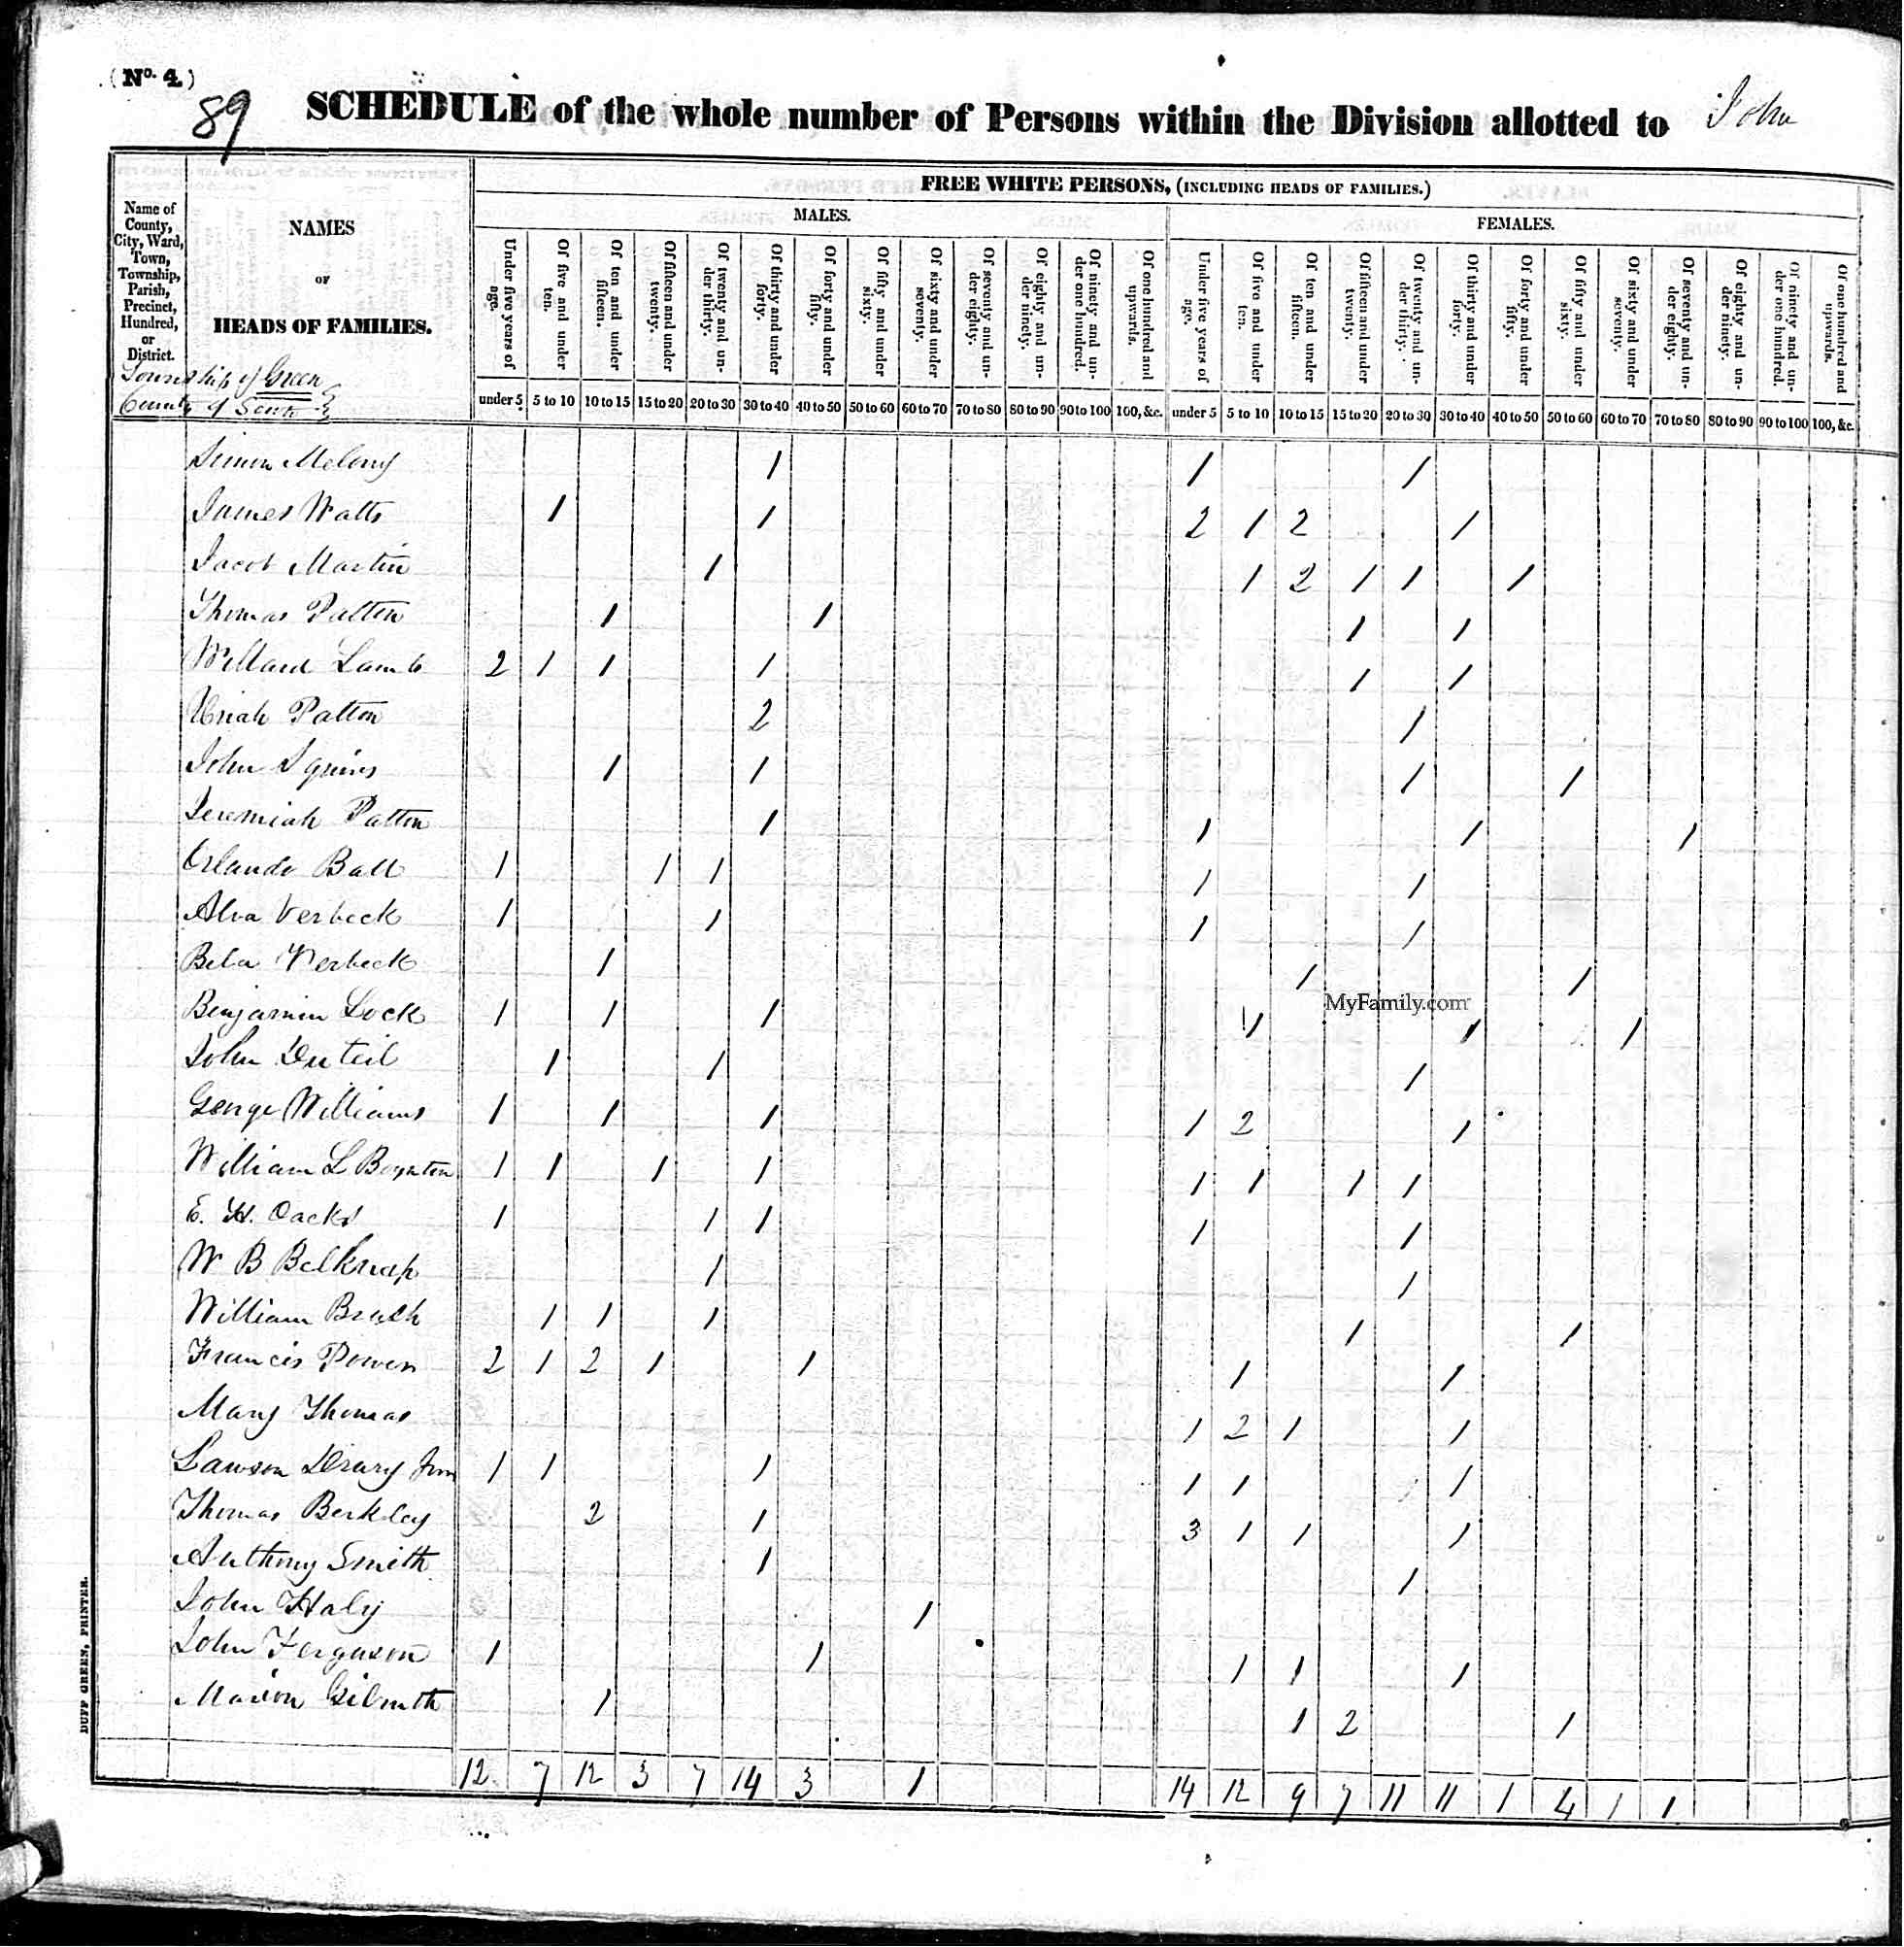 (No. 4.)
89 SCHEDULE of the whole number of Persons within the Division allotted to John
FREE WHITE PERSONS, (INCLUDING HEADS OF FAMILIES.)
MALES. FEMALES.
Name of
County,
City, Ward,
Town,
Township,
Parish,
Precinct,
Hundred,
or
District.
NAMES
OF
HEADS OF FAMILIES.
Under five years of age.
Of five and under ten.
Of ten and under fifteen.
Of fifteen and under twenty.
Of twenty and under thirty.
Of thirty and under forty.
Of forty and under fifty.
Of fifty and under sixty.
Of sixty and under seventy.
Of seventy and under eighty.
Of eighty and under ninety.
Of ninety and under one hundred.
Of one hundred and upwards.
Under five years of age.
Of five and under ten.
Of ten and under fifteen.
Of fifteen and under twenty.
Of twenty and under thirty.
Of thirty and under forty.
Of forty and under fifty.
Of fifty and under sixty.
Of sixty and under seventy.
Of seventy and under eighty.
Of eighty and under ninety.
Of ninety and under one hundred.
Of one hundred and upwards.
Township of Green
County of
under 5 5 to 10 10 to 15 15 to 20 20 to 30 30 to 40 40 to 50 50 to 60 60 to 70 70 to 80 80 to 90 90 to 100 100, &c. under 5 5 to 10 10 to 15 15 to 20 20 to 30 30 to 40 40 to 50 50 to 60 60 to 70 70 to 80 80 to 90 90 to 100 100, &c.
Simon Melony 1 1 1
James Watts 1 1 2 1 2 1
Jacob Martin 1 1 2 1 1 1
Thomas Patton 1 1 1 1
Willard Lamb 2 1 1 1 1 1
Uriah Patton 2 1
John Squires 1 1 1 1
Jeremiah Patton 1 1 1 1
Orlando Ball 1 1 1 1 1
Alva Verbeck 1 1 1 1
Bela Verbeck 1 1 1
MyFamily.com
Benjamin Lock 1 1 1 1 1 1
John Duteil 1 1 1
George Williams 1 1 1 1 2 1
William L Boynton 1 1 1 1 1 1 1 1
E. H. Oacks 1 1 1 1 1
W B Belknap 1 1
William Brush 1 1 1 1 1
Francis Power 2 1 2 1 1 1 1
Mary Thomas 1 2 1 1
Lawson Drury Jun 1 1 1 1 1 1
Thomas Berkley 2 1 3 1 1 1
Anthony Smith 1 1
John Haly 1
John Ferguson 1 1 1 1 1
Marion 1 1 2 1
12 7 12 3 7 14 3 1 14 12 9 7 11 11 1 4 1 1
DUFF GREEN, PRINTER.